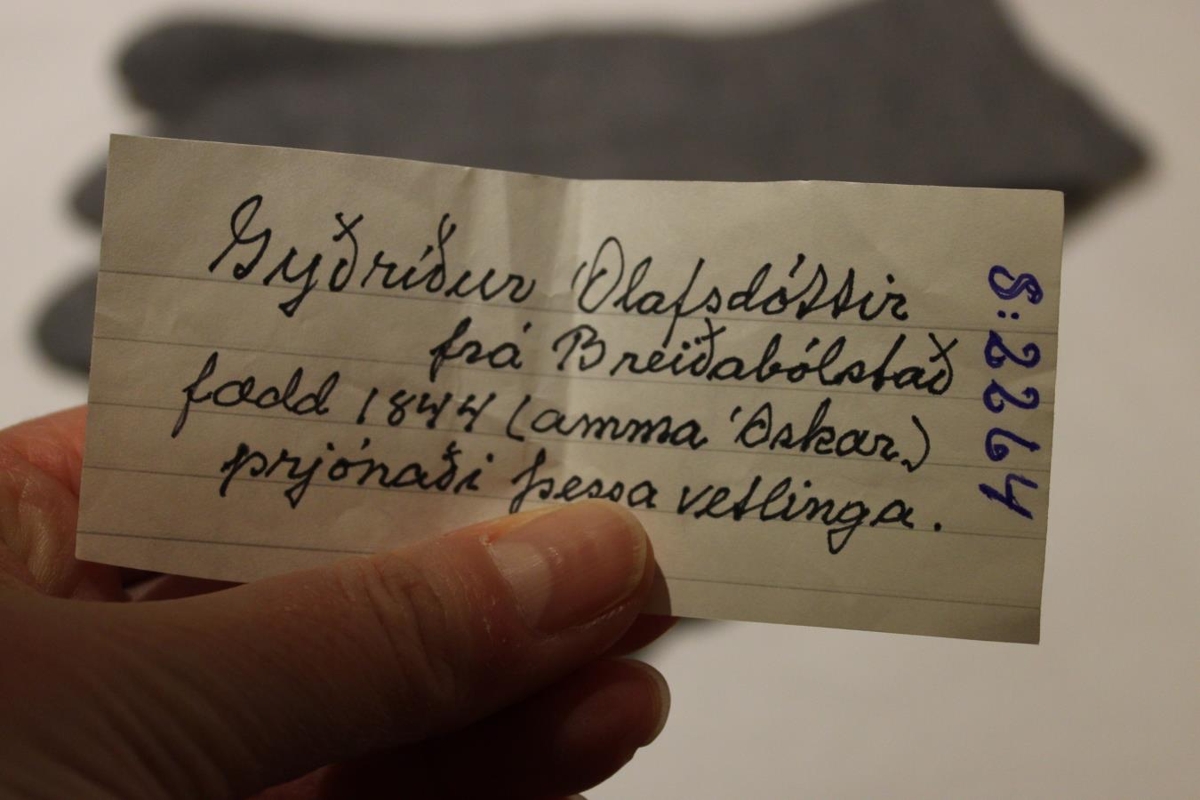 Gyðríður Ólafsdóttir
frá Breiðabólstað
fædd 1844 (amma Óskar)
prjónaði þessa vetlinga.
S:2264